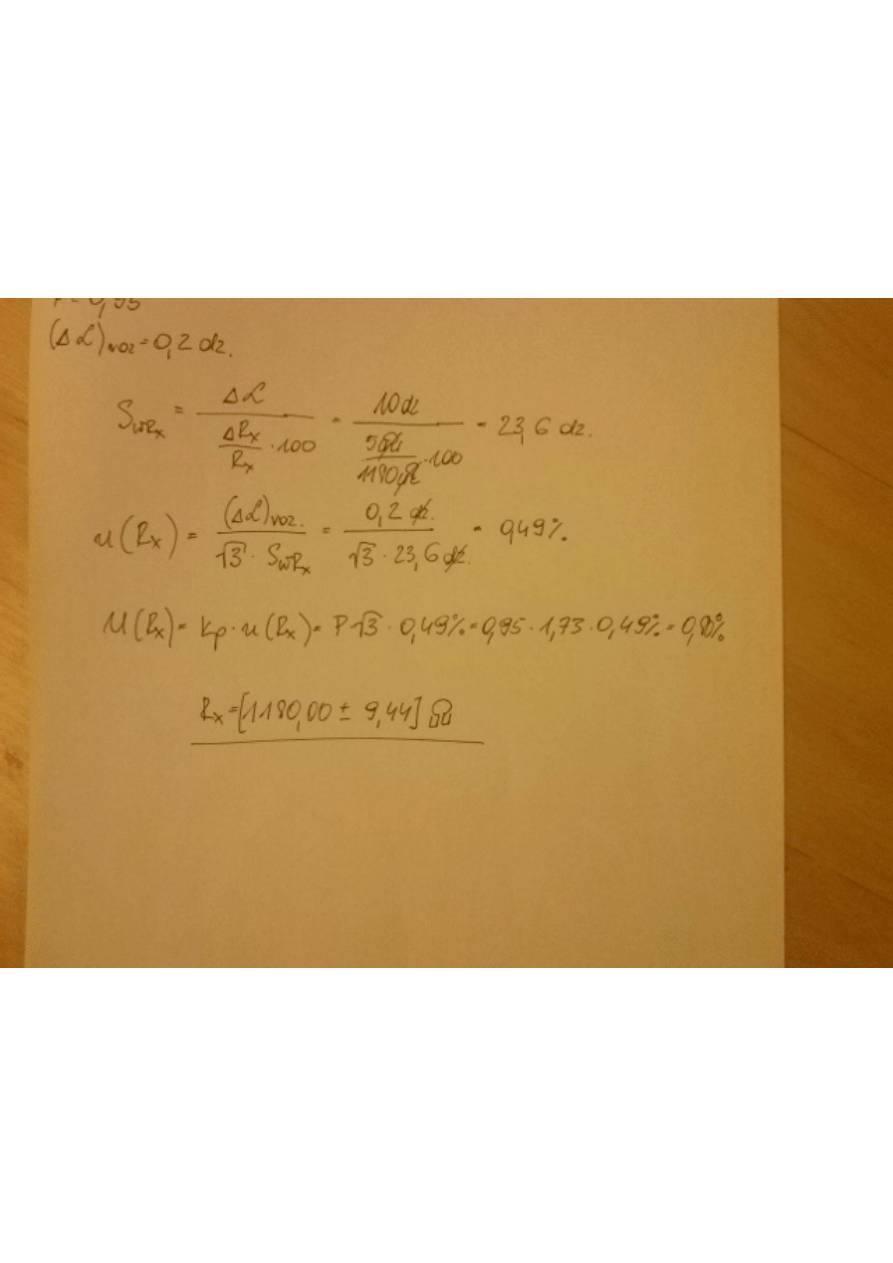 P = 0,95
(Δα)noz = 0,2 dz.
SwRx = Δα / (ΔRx/Rx · 100) = 10 dz / (5Ω/1180Ω · 100) = 23,6 dz.
u(Rx) = (Δα)noz. / (√3 · SwRx) = 0,2 dz. / (√3 · 23,6 dz.) = 0,49%
U(Rx) = kp · u(Rx) = P√3 · 0,49% = 0,95 · 1,73 · 0,49% = 0,80%
Rx = [1180,00 ± 9,44] Ω